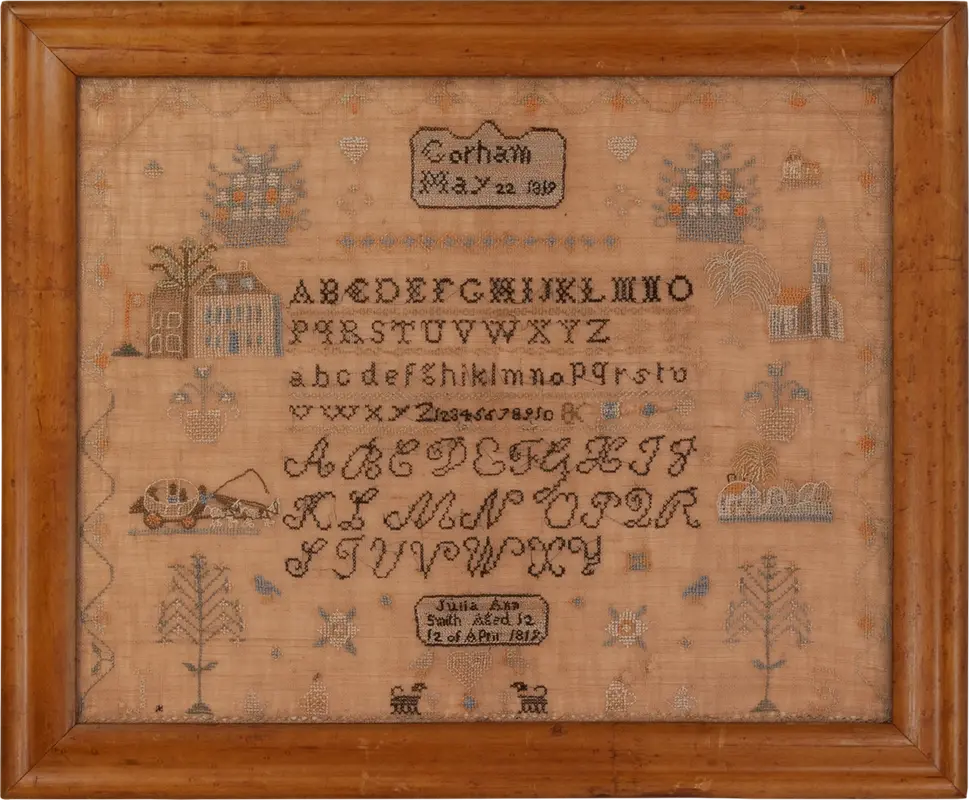 Gorham
May 22 1819
ABCDEFGHIJKLMNO
PQRSTUVWXYZ
abcdefghiklmnopqrstu
vwxyz12345678910 &
ABCDEFGHIJ
KLMNOPQR
STUVWXY
Julia Ann
Smith Aged 12
12 of April 1819